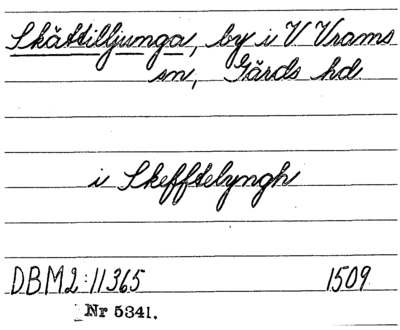 Skättilljunga, by i V Vrams
sn, Gärds hd
i Skefftelyngh
DBM2:11365 1509
Nr 5341.